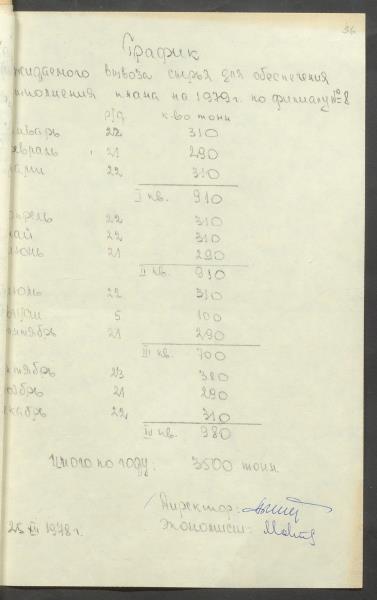 36
График
жидаемого вывоза сырья для обеспечения
ыполнения плана на 1979 г. по филиалу №8
р/д к-во тонн
нварь 22 310
евраль 21 290
арт 22 310
I кв. 910
прель 22 310
май 22 310
июнь 21 290
II кв. 910
июль 22 310
вгуст 5 100
ентябрь 21 290
III кв. 700
ктябрь 23 380
оябрь 21 290
екабрь 22 310
IV кв. 980
Итого по году: 3500 тонн.
Директор:
Экономист:
25 XII 1978 г.